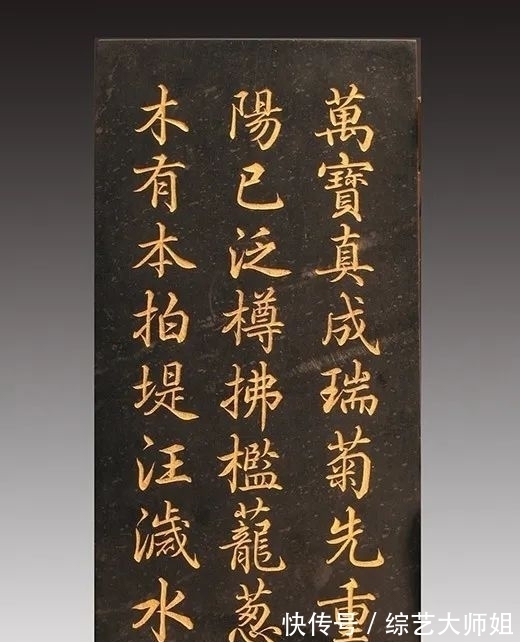 萬寶真成瑞菊先重
陽已泛樽拂檻蘢葱
木有本拍堤汪濊水
快传号/综艺大师姐